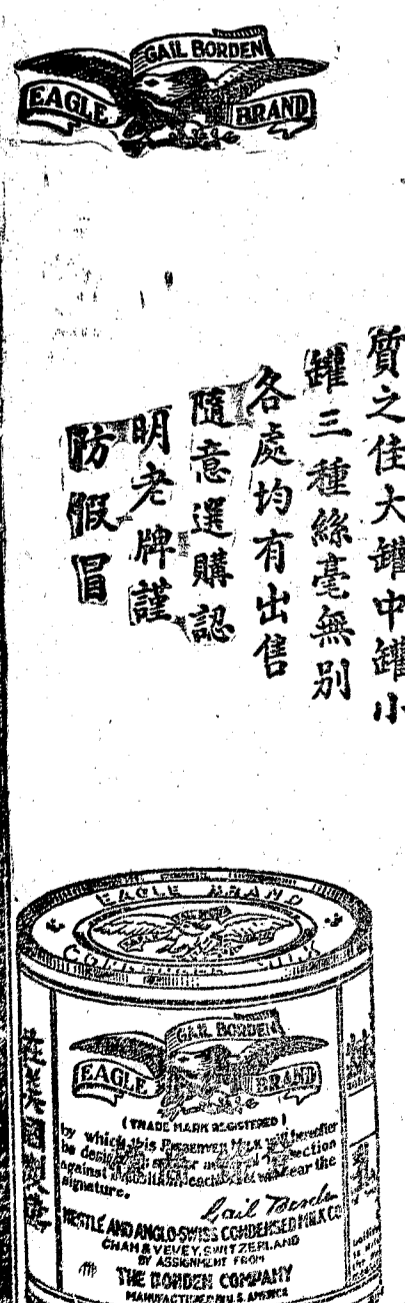 GAIL BORDEN
EAGLE BRAND
質之佳大罐中罐小
罐三種絲毫無別
各處均有出售
隨意選購認
明老牌謹
防假冒
EAGLE BRAND
MILK
GAIL BORDEN
EAGLE BRAND
(TRADE MARK REGISTERED)
by which this PRESERVED MILK will hereafter
be
against each bear the
signature.
Gail Borden
NESTLE AND ANGLO-SWISS CONDENSED MILK CO
CHAM & VEVEY, SWITZERLAND
BY ASSIGNMENT FROM
THE BORDEN COMPANY
MANUFACTURED IN U.S. AMERICA